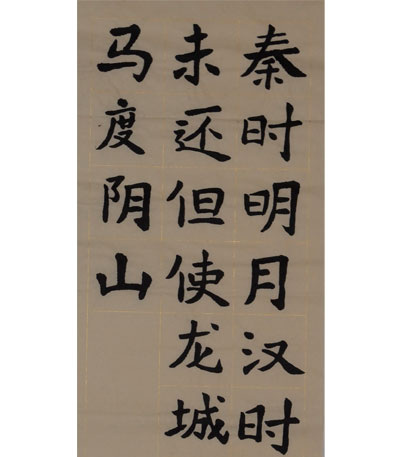 秦时明月汉时
未还但使龙城
马度阴山